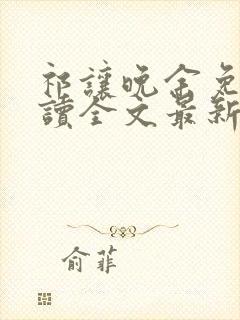 祁讓晚余免
讀全文最新
俞菲